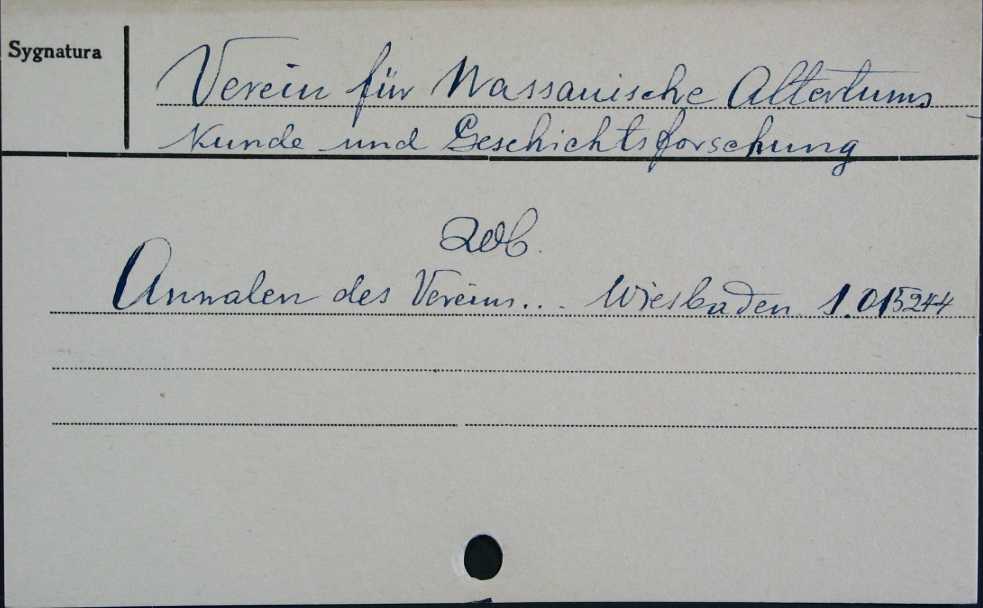 Sygnatura
Verein für Nassauische Altertums
Kunde und Geschichtsforschung
zob.
Annalen des Vereins... Wiesbaden 1.015244